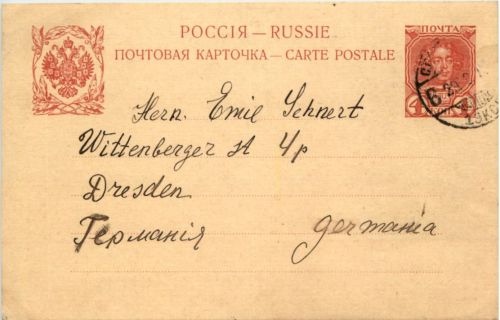 РОССІЯ — RUSSIE
ПОЧТОВАЯ КАРТОЧКА — CARTE POSTALE
ПОЧТА
Hern. Emil Schnert
Wittenberger st 4p
Dresden
Германія germania